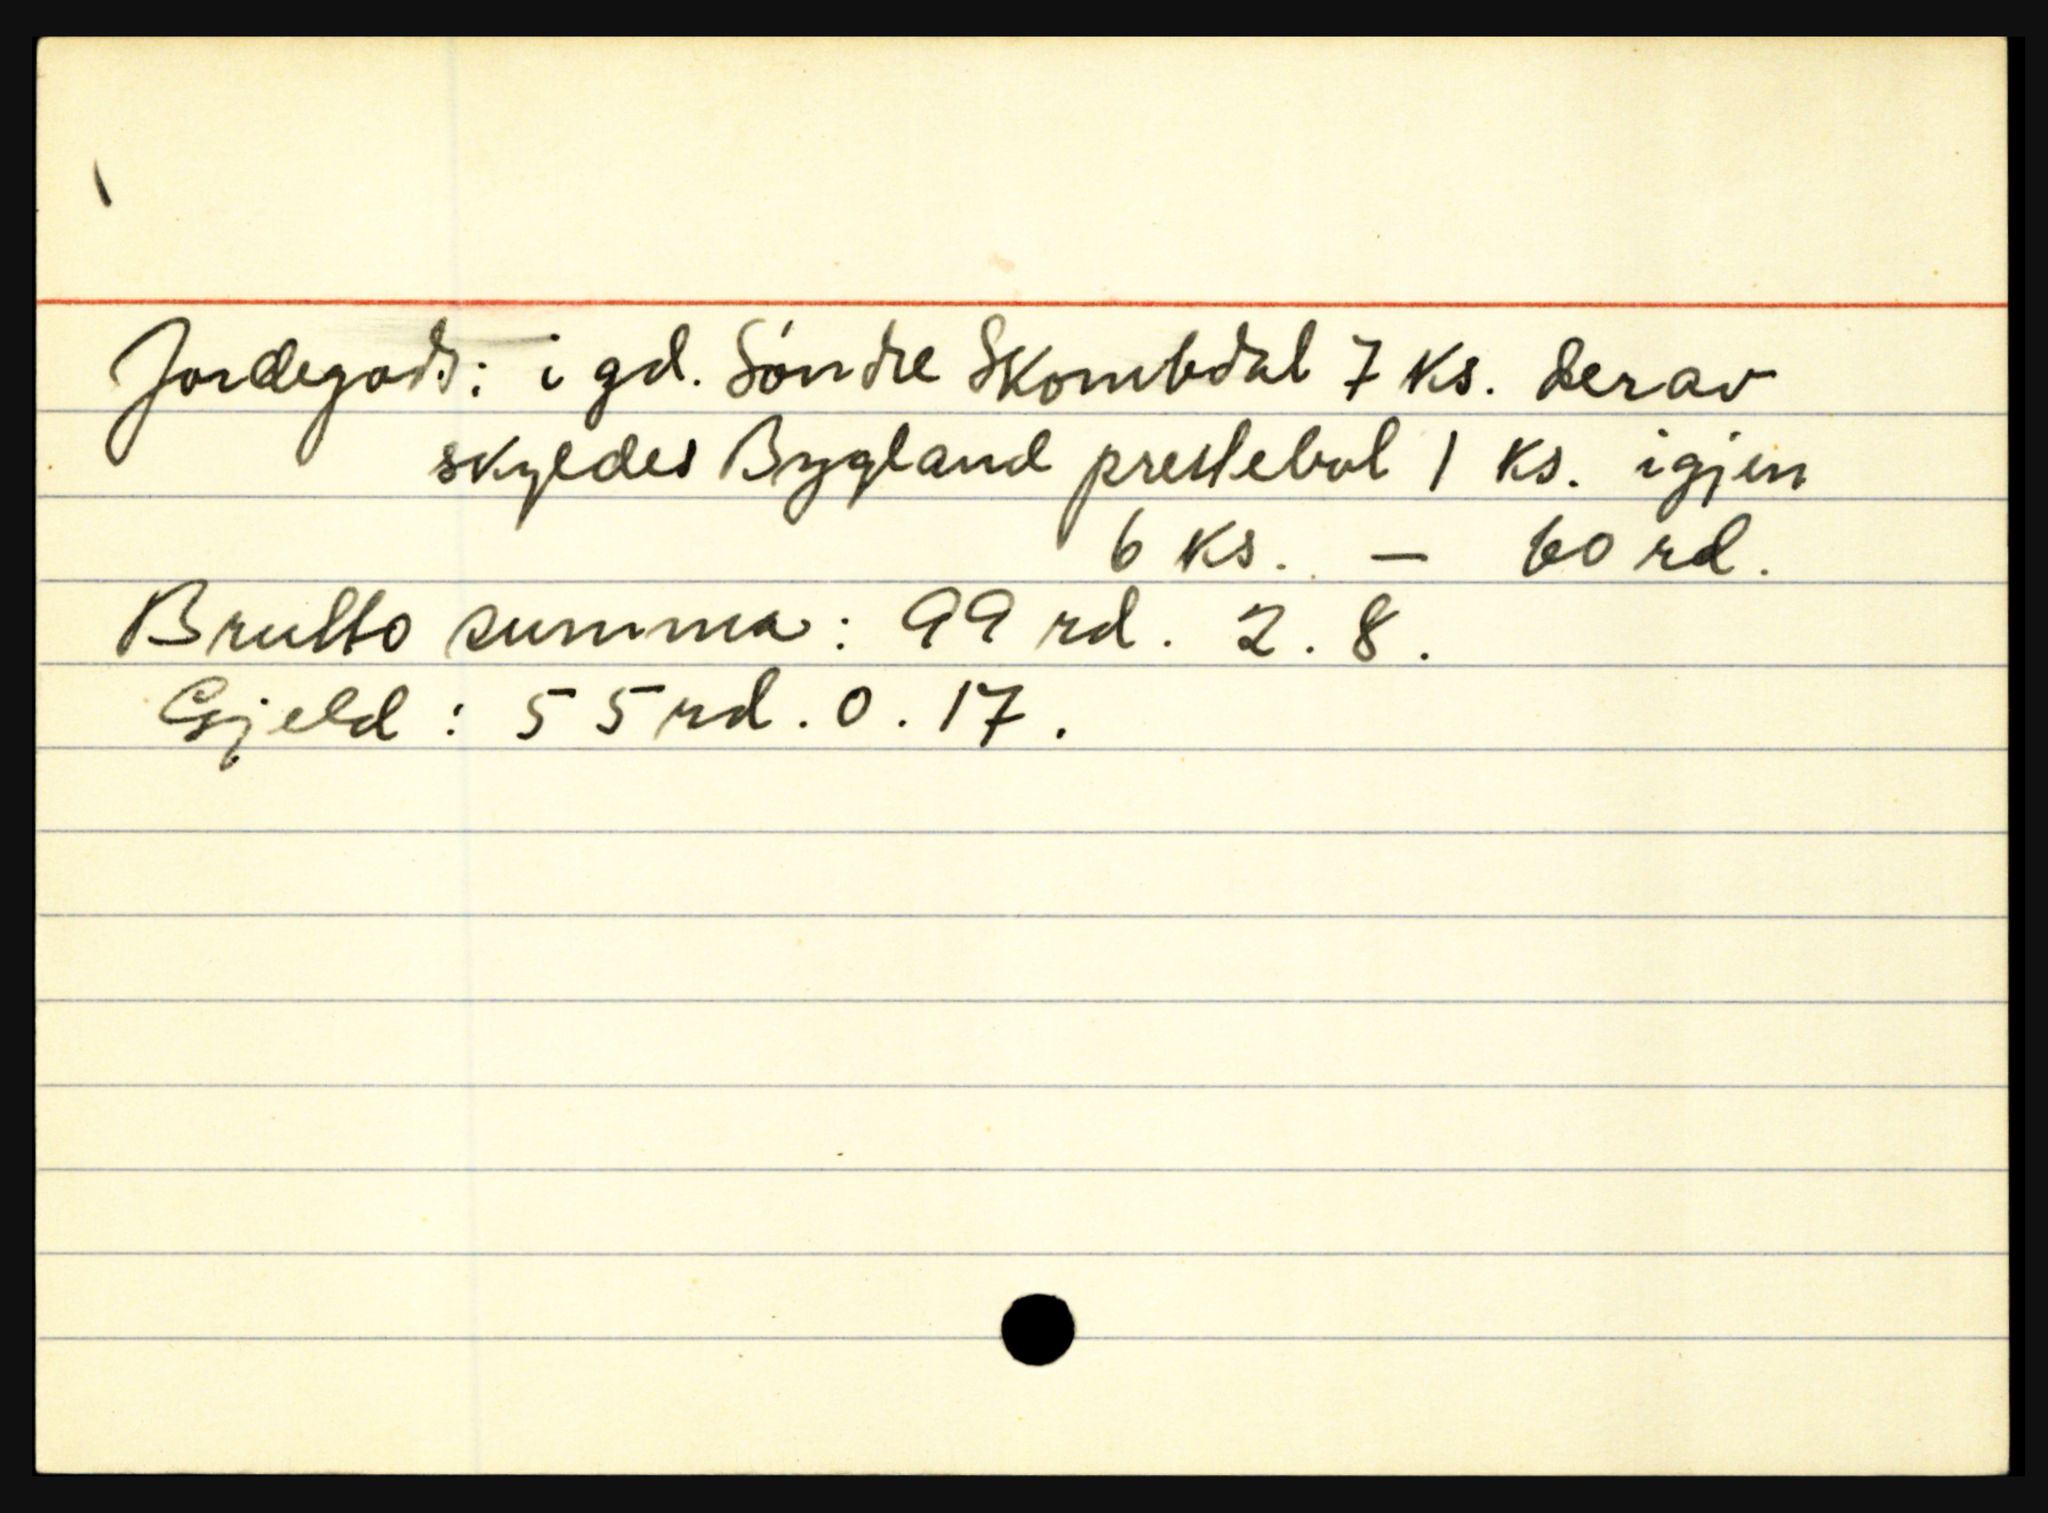 Jordegods: i gd. Søndre Skomedal 7 ks. derav
skyldes Bygland prestebol 1 ks. igjen
6 ks. – 60 rd.
Brutto summa: 99 rd. 2. 8.
Gjeld: 55 rd. 0. 17.